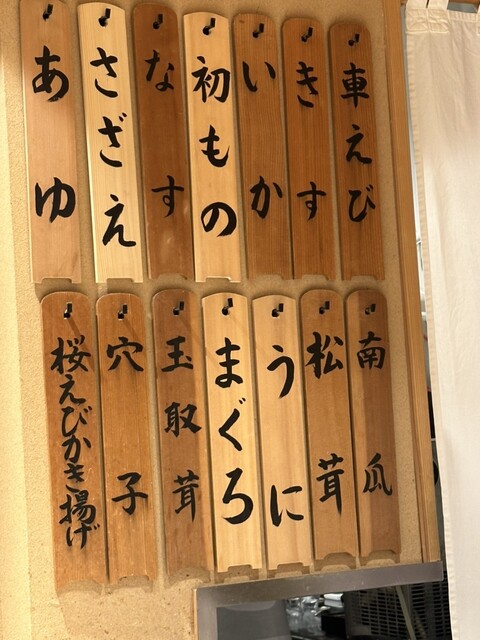 車えび
きす
いか
初もの
なす
さざえ
あゆ
南瓜
松茸
うに
まぐろ
玉取茸
穴子
桜えびかき揚げ